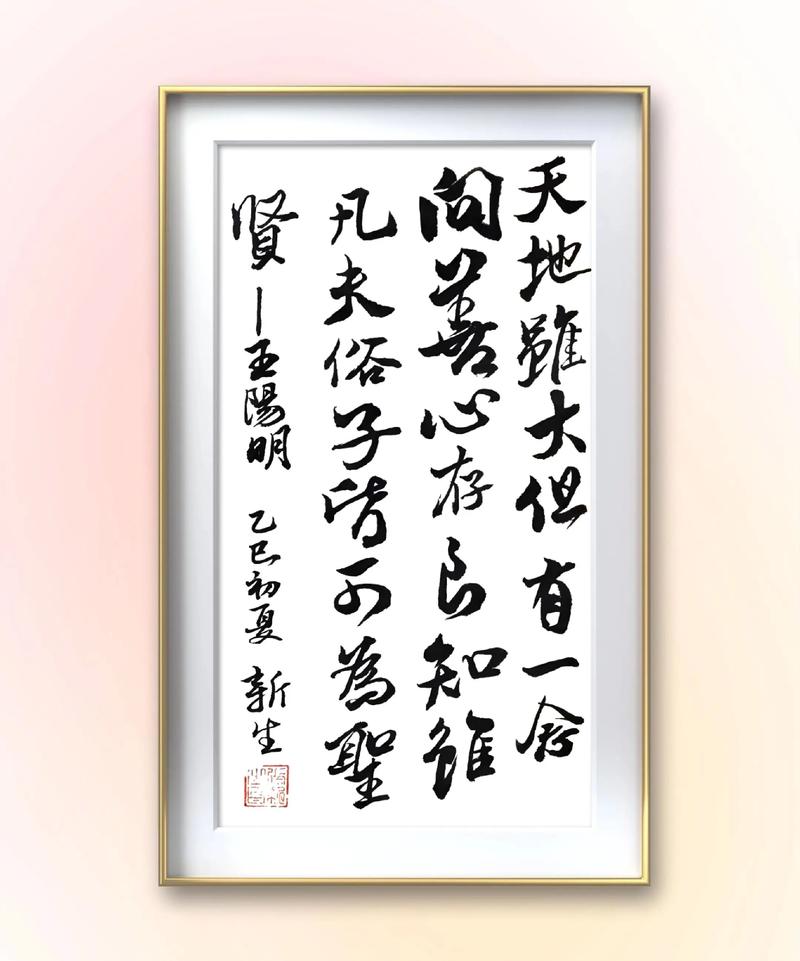 天地雖大但有一念
向善心存良知雖
凡夫俗子皆可為聖
賢—王陽明 乙巳初夏 新生